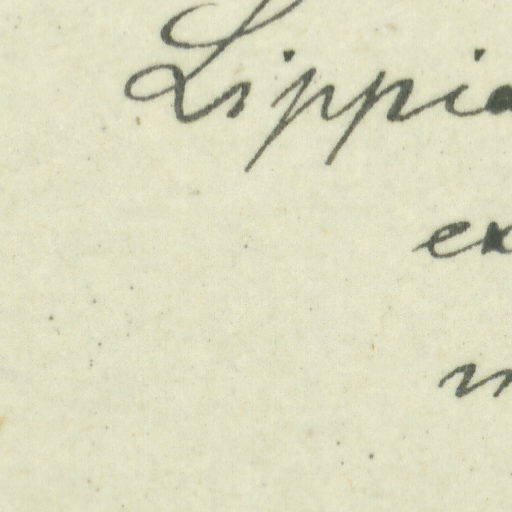 Lippia
ex